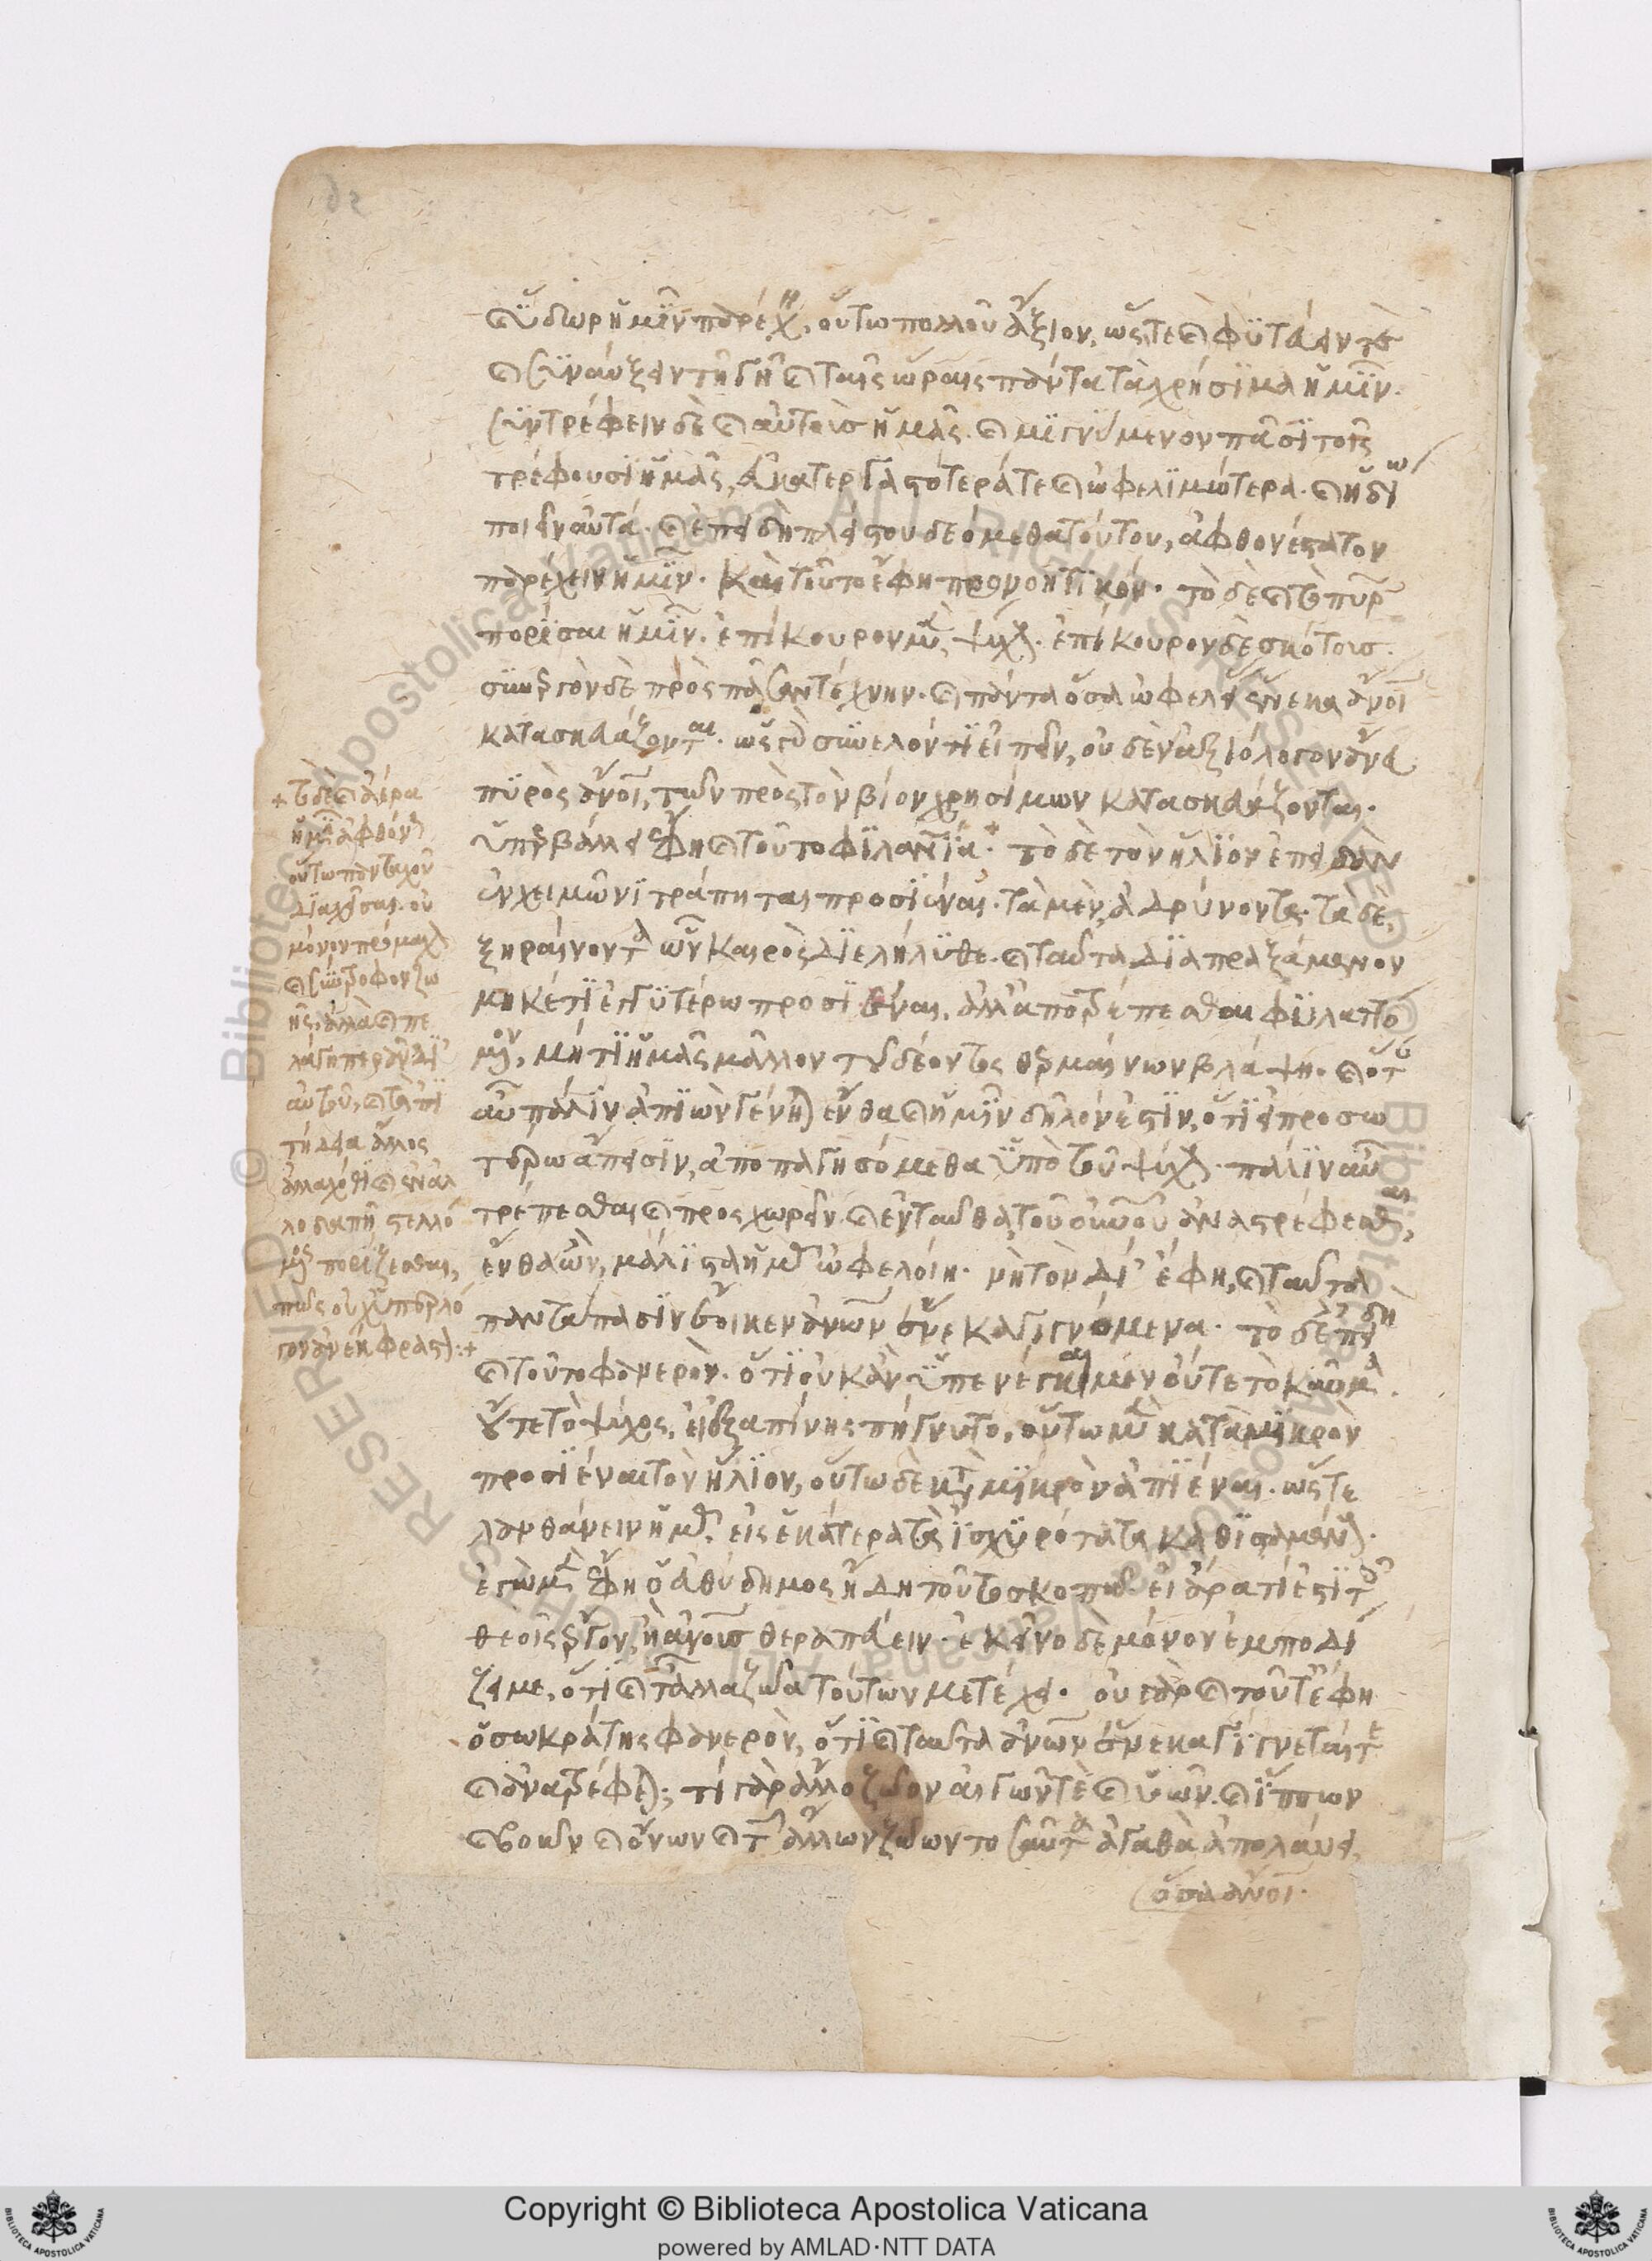 ὕδωρ ἡμῖν παρέχη, οὕτω πολλοῦ ἄξιον, ὥστε καὶ φυτεύειν τε
καὶ συναύξειν τῆ γῆ καὶ ταῖς ὥραις πάντα τὰ χρήσιμα ἡμῖν.
συντρέφειν δὲ καὶ αὐτοὺς ἡμᾶς. καὶ μιγνύμενον πᾶσι τοῖς
τρέφουσιν ἡμᾶς, εὐκατεργαστότερά τε καὶ ὠφελιμώτερα. καὶ ἡδίω
ποιεῖν αὐτά. καὶ ἐπειδὴ πλείστου δεόμεθα τούτου, ἀφθονέστατον
παρέχειν ἡμῖν. καὶ τοῦτο ἔφη προνοητικόν. τὸ δὲ καὶ τὸ πῦρ
πορίσαι ἡμῖν. ἐπίκουρον μὲν ψύχους. ἐπίκουρον δὲ σκότους.
συνεργὸν δὲ πρὸς πᾶσαν τέχνην. καὶ πάντα ὅσα ὠφελείας ἕνεκα ἄνοι
κατασκευάζονται. ὡς γὰρ συνελόντι εἰπεῖν, οὐδὲν ἀξιόλογον ἄνευ
πυρὸς ἄνοι, τῶν πρὸς τὸν βίον χρησίμων κατασκευάζονται.
ὑπερβάλλει ἔφη καὶ τοῦτο φιλανία. + τὸ δὲ τὸν ἥλιον ἐπειδὰν
ἐν χειμῶνι τράπηται προσιέναι. τὰ μὲν, ἁδρύνοντα. τὰ δὲ,
ξηραίνοντα ὧν καιρὸς διελήλυθε. καὶ ταῦτα διαπραξάμενον
μηκέτι ἐγγυτέρω προσιέναι, ἀλλ' ἀποτρέπεσθαι φυλαττό
μενον, μή τι ἡμᾶς μᾶλλον τοῦ δέοντος θερμαίνων βλάψη. καὶ ὅταν
αὖ πάλιν ἀπιὼν γένηται ἔνθα καὶ ἡμῖν δῆλόν ἐστιν, ὅτι εἰ προσω
τέρω ἄπεισιν, ἀποπαγησόμεθα ὑπὸ τοῦ ψύχους. πάλιν αὖ
τρέπεσθαι καὶ προσχωρεῖν. καὶ ἐνταῦθα τοῦ οὐνοῦ ἀναστρέφεσθαι,
ἔνθα ὢν, μάλιστα ἡμᾶς ὠφελοίη. νὴ τὸν Δί' ἔφη, καὶ ταῦτα
παντάπασιν ἔοικεν ἀνων ἕνεκα γιγνόμενα. τὸ δὲ ἐπειδὴ
καὶ τοῦτο φανερὸν. ὅτι οὐκ ἂν ὑπενέγκαιμεν οὔτε τὸ καῦμα.
οὔτε τὸ ψύχος, εἰ ἐξαπίνης γίγνοιτο, οὕτω μὲν κατὰ μικρὸν
προσιέναι τὸν ἥλιον, οὕτω δὲ κατὰ μικρὸν ἀπιέναι. ὥστε
λανθάνειν ἡμᾶς εἰς ἑκάτερα τὰ ἰσχυρότατα καθισταμένους.
ἐγὼ μὲν ἔφη ὁ εὐθύδημος ἤδη τοῦτο σκοπῶ. εἰ ἄρα τί ἐστι τοῖς
θεοῖς ἔργον, ἢ ἀνους θεραπεύειν. ἐκεῖνο δὲ μόνον ἐμποδί
ζει με, ὅτι καὶ τἆλλα ζῶα τούτων μετέχει. οὐ γὰρ καὶ τοῦτ' ἔφη
ὁ σωκράτης φανερὸν, ὅτι καὶ ταῦτα ἀνων ἕνεκα γίγνεταί τε
καὶ ἀνατρέφεται; τί γὰρ ἄλλο ζῶον αἰγῶν τε καὶ ὀΐων. καὶ ἵππων
καὶ βοῶν καὶ ὄνων καὶ τῶν ἄλλων ζώων τοσαῦτα ἀγαθὰ ἀπολαύει,
ὅσα ἄνοι.
+ τὸ δὲ καὶ ἀέρα
ἡμῖν ἀφθόνως
οὕτω πανταχοῦ
διαχῦσαι. οὐ
μόνον πρόμαχον
καὶ σύντροφον ζω
ῆς, ἀλλὰ καὶ πε
λάγη περᾶν δι'
αὐτοῦ, καὶ τὰ ἐπι
τήδεια ἄλλος
ἀλλαχόθι καὶ ἐν ἀλ
λοδαπῆ στελλό
μενος πορίζεσθαι,
πῶς οὐχ ὑπὲρ λό
γον ἀνέκφραστον:+